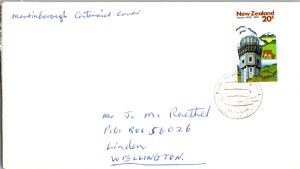 Martinborough Centennial Cover
New Zealand
20c
Mr J. M. Raethel
P.O. Box 56026
Linden
WELLINGTON.